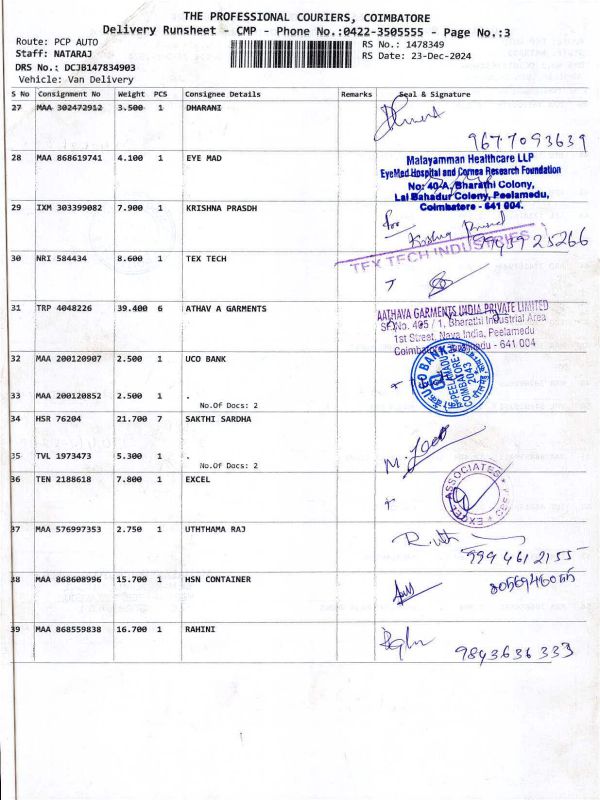 THE PROFESSIONAL COURIERS, COIMBATORE
Delivery Runsheet - CMP - Phone No.:0422-3505555 - Page No.:3
Route: PCP AUTO
RS No.: 1478349
Staff: NATARAJ
RS Date: 23-Dec-2024
DRS No.: DCJB147834903
Vehicle: Van Delivery
S No Consignment No Weight PCS Consignee Details Remarks Seal & Signature
27 MAA 302472912 3.500 1 DHARANI
9677093639
28 MAA 868619741 4.100 1 EYE MAD
Malayamman Healthcare LLP
EyeMed Hospital and Cornea Research Foundation
No: 40-A, Bharathi Colony,
Lal Bahadur Colony, Peelamedu,
Coimbatore - 641 004.
29 IXM 303399082 7.900 1 KRISHNA PRASDH
for
Krishna Prasad
30 NRI 584434 8.600 1 TEX TECH
TEX TECH INDUSTRIES
31 TRP 4048226 39.400 6 ATHAV A GARMENTS
AATHAVA GARMENTS INDIA PRIVATE LIMITED
SF.No. 405 / 1, Bharathi Industrial Area
1st Street, Nava India, Peelamedu
Coimbatore - 641 004
32 MAA 200120907 2.500 1 UCO BANK
UCO BANK
PEELAMEDU
COIMBATORE
33 MAA 200120852 2.500 1 .
No.Of Docs: 2
34 HSR 76204 21.700 7 SAKTHI SARDHA
35 TVL 1973473 5.300 1 .
No.Of Docs: 2
36 TEN 2188618 7.800 1 EXCEL
EXCEL ASSOCIATES
37 MAA 576997353 2.750 1 UTHTHAMA RAJ
9994612155
38 MAA 868608996 15.700 1 HSN CONTAINER
39 MAA 868559838 16.700 1 RAHINI
9843636333